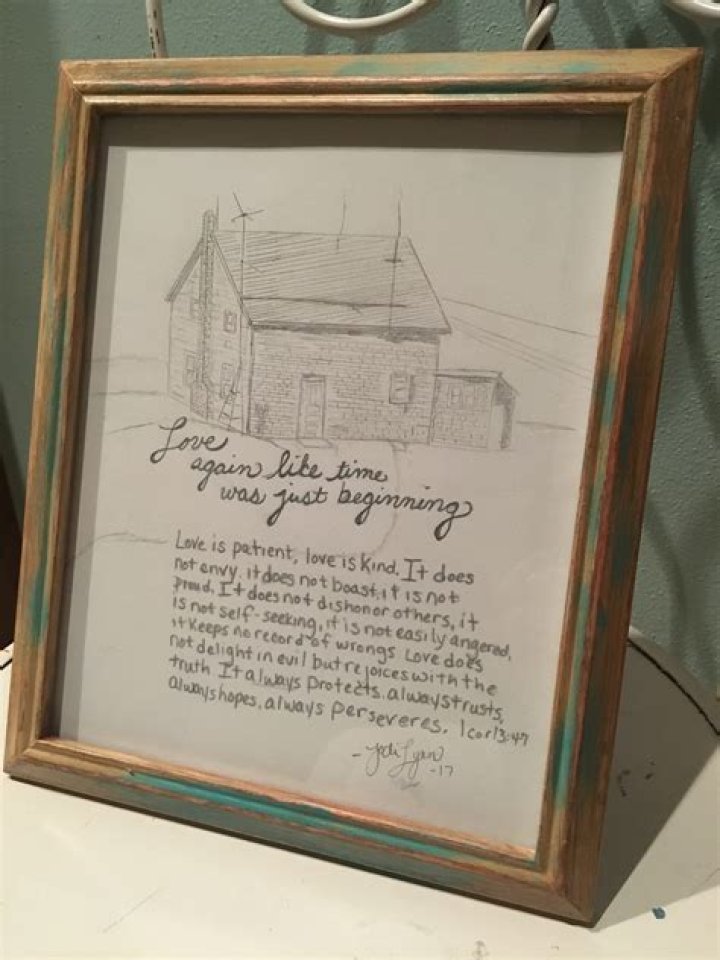 Love
again like time
was just beginning
Love is patient, love is kind. It does
not envy, it does not boast, it is not
proud. It does not dishonor others, it
is not self-seeking, it is not easily angered,
it keeps no record of wrongs Love does
not delight in evil but rejoices with the
truth It always protects, always trusts,
always hopes, always perseveres. 1 cor 13:47
-17